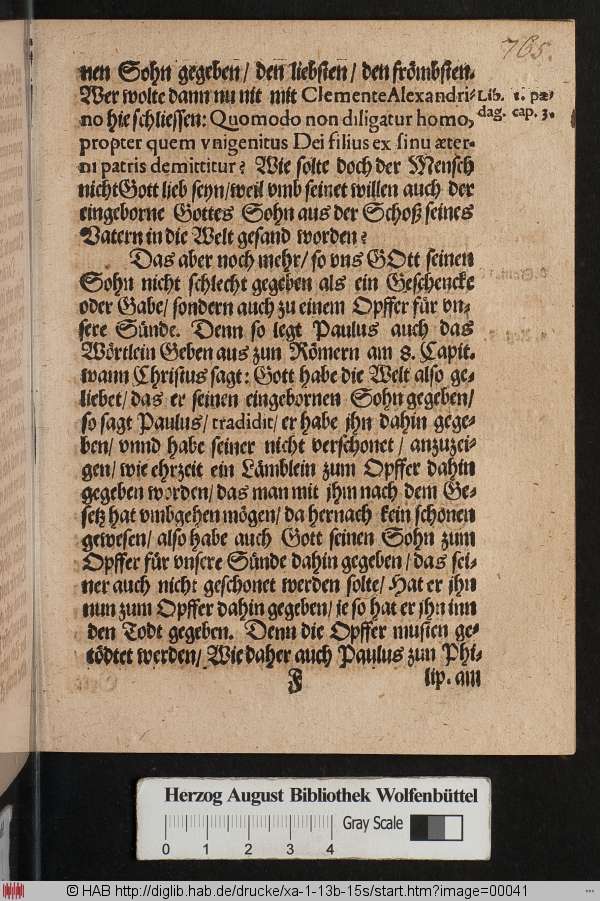 765.
nen Sohn gegeben/ den liebsten/ den frömbsten.
Wer wolte dann nu nit mit Clemente Alexandri-
no hie schliessen: Quomodo non diligatur homo,
propter quem vnigenitus Dei filius ex sinu æter-
ni patris demittitur? Wie solte doch der Mensch
nicht Gott lieb seyn/ weil vmb seinet willen auch der
eingeborne Gottes Sohn aus der Schoß seines
Vatern in die Welt gesand worden?
Lib. 1. pæ-
dag. cap. 3.
Das aber noch mehr/ so vns GOtt seinen
Sohn nicht schlecht gegeben als ein Geschencke
oder Gabe/ sondern auch zu einem Opffer für vn-
sere Sünde. Denn so legt Paulus auch das
Wörtlein Geben aus zun Römern am 8. Capit.
wann Christus sagt: Gott habe die Welt also ge-
liebet/ das er seinen eingebornen Sohn gegeben/
so sagt Paulus/ tradidit/ er habe jhn dahin gege-
ben/ vnnd habe seiner nicht verschonet/ anzuzei-
gen/ wie ehrzeit ein Lämblein zum Opffer dahin
gegeben worden/ das man mit jhm nach dem Ge-
setz hat vmbgehen mögen/ da hernach kein schonen
gewesen/ also habe auch Gott seinen Sohn zum
Opffer für vnsere Sünde dahin gegeben/ das sei-
ner auch nicht geschonet werden solte/ Hat er jhn
nun zum Opffer dahin gegeben/ je so hat er jhn inn
den Todt gegeben. Denn die Opffer musten ge-
tödtet werden/ Wie daher auch Paulus zun Phi-
F lip. am
Herzog August Bibliothek Wolfenbüttel
0 1 2 3 4 Gray Scale
© HAB http://diglib.hab.de/drucke/xa-1-13b-15s/start.htm?image=00041